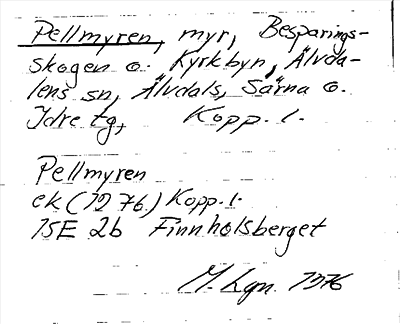 Pellmyren, myr, Besparings-
skogen o. Kyrkbyn, Älvda-
lens sn, Älvdals, Särna o.
Idre tg, Kopp. l.
Pellmyren
ek (1976) Kopp. l.
15E 2b Finnholsberget
M. Lgn. 1976